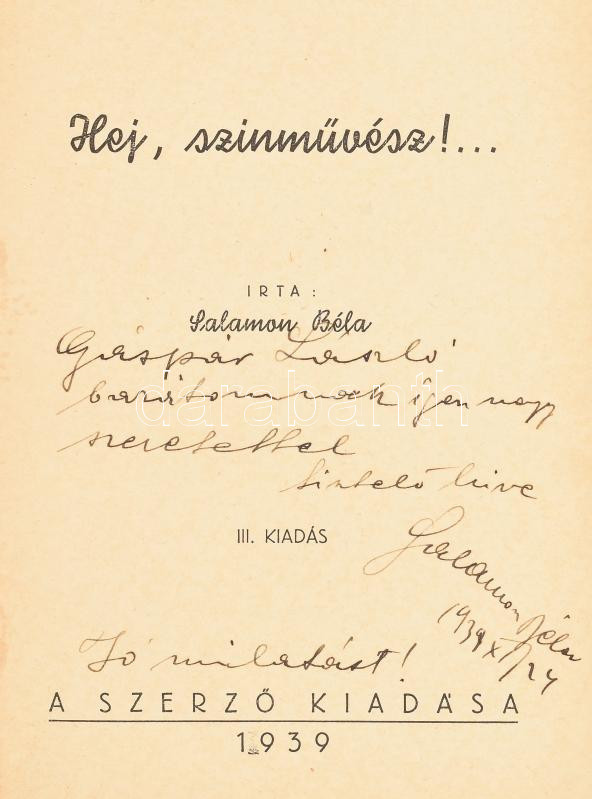 Hej, szinművész!...
IRTA:
Salamon Béla
Gáspár László
barátomnak igen nagy
szeretettel
tisztelő híve
III. KIADÁS
Salamon Béla
1939 XI/24
Jó mulatást!
A SZERZŐ KIADÁSA
1939
darabanth